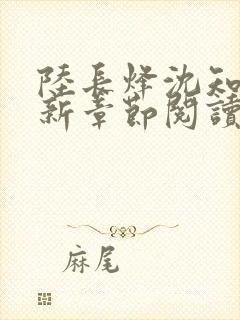 陸長烽沈知
新章節閱讀
麻尾